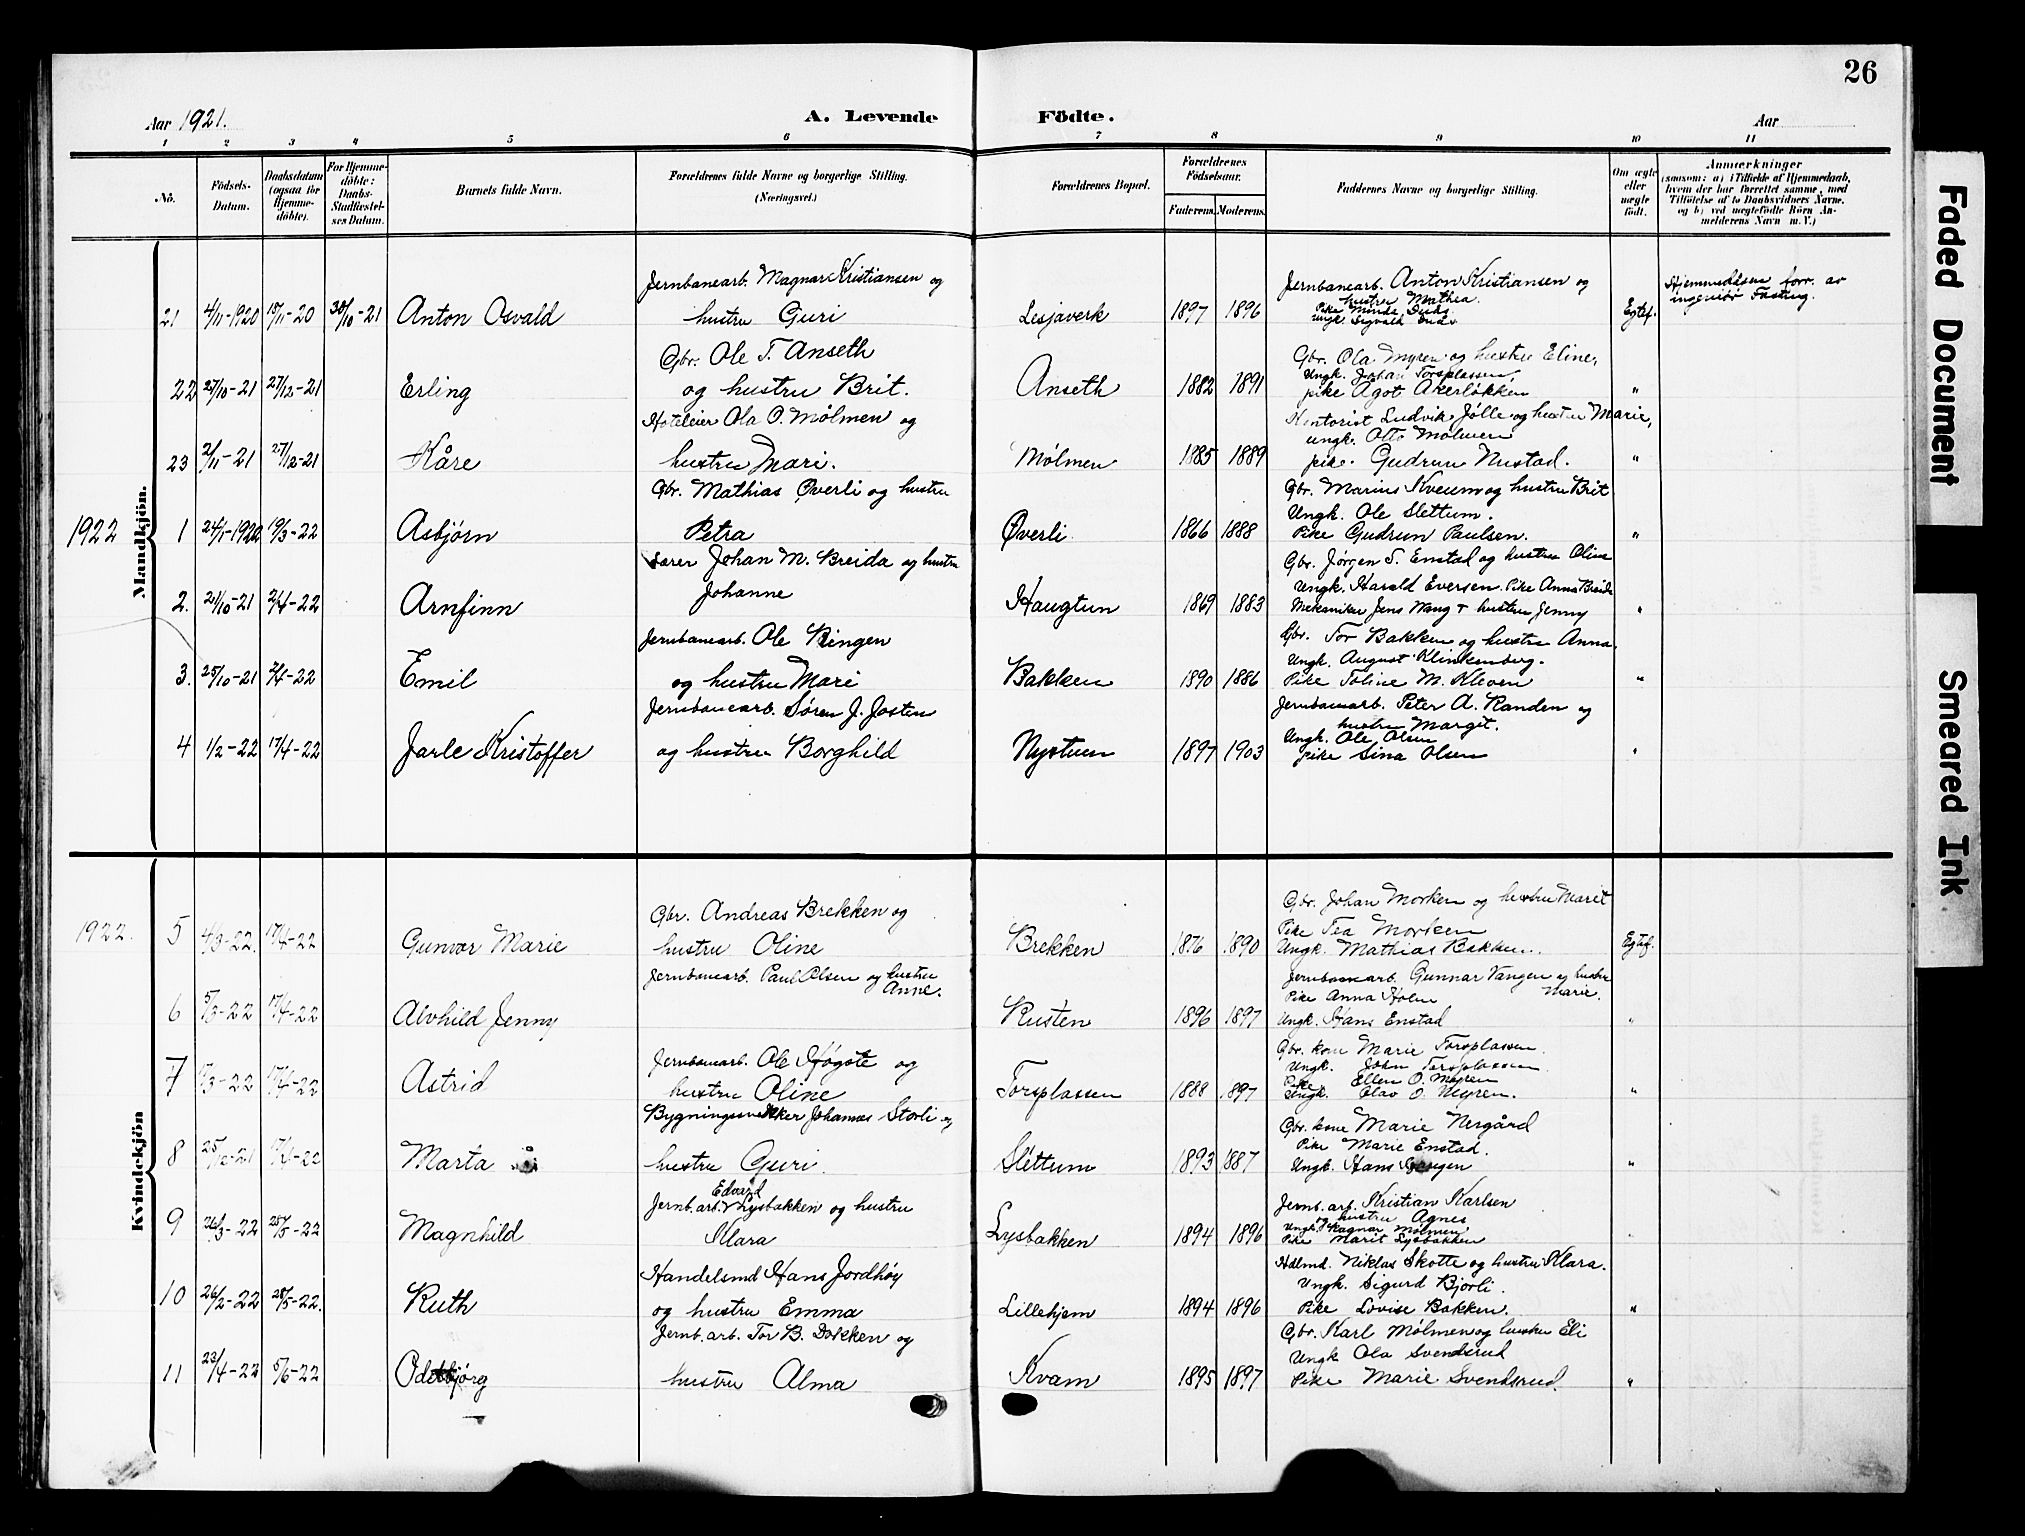 26
Aar 1921. A. Levende Födte. Aar
1 2 3 4 5 6 7 8 9 10 11
No. Födsels-Datum. Daabsdatum (ogsaa for Hjemme-döbte). For Hjemme-döbte: Daabs-Stadfæstel-ses Datum. Barnets fulde Navn. Forældrenes fulde Navne og borgerlige Stilling. (Næringsvei.) Forældrenes Bopæl. Forældrenes Födselsaar. Faderens. Moderens. Faddernes Navne og borgerlige Stilling. Om ægte eller uægte födt. Anmærkninger (saasom: a) i Tilfælde af Hjemmedaab, hvem der har forrettet samme, med Tilföielse af to Daabsvidners Navne, og b) ved uægtefödte Börn An-melderens Navn m. V.)
Mandkjön.
Jernbanearb. Magnar Kristiansen og
Jernbanearb. Anton Kristiansen og
Hjemmedåpen forr. av
ingeniør Fasting.
hustru Mathea.
21 4/11-1920 18/11-20 30/10-21 Anton Osvald hustru Guri Lesjaverk 1897 1896 Egtef.
Gbr. Ole T. Anseth
Gbr. Ola Myren og hustru Eline,
Ungk. Johan Torsplassen,
22 27/10-21 27/12-21 Erling og hustru Brit. Anseth 1882 1891 pike Ågot Åkerløkken "
Hoteleier Ola O. Mølmen og
Kontorist Ludvik Jølle og hustru Marie,
ungk. Otto Mølmen
23 2/11-21 27/12-21 Kåre hustru Mari. Mølmen 1885 1889 pike. Gudrun Nustad. "
Gbr. Mathias Øverli og hustru
Gbr. Marius Kveum og hustru Brit
Ungk. Ole Slettum.
1922 1 24/1-1922 19/3-22 Asbjørn Petra Øverli 1866 1888 Pike Gudrun Paulsen. "
Lærer Johan M. Breida og hustru
Gbr. Jørgen T. Enstad og hustru Oline
Ungk. Harald Eversen. Pike Anna Breida
Johanne
2. 21/10-21 2/4-22 Arnfinn Haugtun 1869 1883 Mekaniker Jens Wang + hustru Jenny "
Jernbanearb. Ole Ringen
Gbr. Tor Bakken og hustru Anna.
Ungk. August Klinkenberg.
3. 25/10-21 2/4-22 Emil og hustru Mari Bakken 1890 1886 Pike Toline M. Kleven "
Jernbanearb. Søren J. Josten
Jernbanearb. Peter A. Randen og
hustru Margit.
Ungk. Ole Olsen
4 1/2-22 17/4-22 Jarle Kristoffer og hustru Borghild Nystuen 1897 1903 pike Sina Olsen "
Kvindekjön
Gbr. Andreas Brekken og
Gbr. Johan Morken og hustru Marit
Pike Tea Morken
1922. 5 4/3-22. 17/4-22 Gunvor Marie hustru Oline Brekken 1876 1890 Ungk. Mathias Bakken. Egtef.
Jernbanearb. Paul Olsen og hustru
Anne.
Jernbanearb. Gunnar Vangen og hustru
Marie.
Pike Anna Holm
6 5/3-22 17/4-22 Alvhild Jenny Rusten 1896 1897 Ungk. Hans Enstad "
Jernbanearb. Ole Høgste og
Gbr. kone Marie Torsplassen.
Ungk. John Torsplassen
Pike Ellen O. Myren
7 /3-22 17/4-22 Astrid hustru Oline Torsplassen 1888 1897 Ungk. Olav O. Myren. "
Bygningssnekker Johannes Storli og
Gbr. kone Marie Nergård
Pike Marie Enstad.
8 25/12-21 17/4-22 Marta hustru Guri. Slettum 1893 1887 Ungk. Hans "
Edvard
Jernb. arb. Lysbakken og hustru
Jernb. arb. Kristian Karlsen
og hustru Agnes
Ungk. Ragnar Mølmen
9 26/3-22 25/5-22 Magnhild Klara Lysbakken 1894 1896 Pike Marit Lysbakken "
Handelsmd Hans Jordhøy
Hdlmd. Niklas Skotte og hustru Klara.
Ungk. Sigurd Bjorli.
10 26/2-22 25/5-22. Ruth og hustru Emma Lillehjem 1894 1896 Pike Lovise Bakken. "
Jernb. arb. Tor B. Dokken og
Gbr. Karl Mølmen og hustru Eli
Ungk Ola Svendsrud
11 23/4-22 5/6-22 Odbjørg hustru Alma Kvam 1895 1897 Pike Marie Svendsrud. "
Faded Document
Smeared Ink